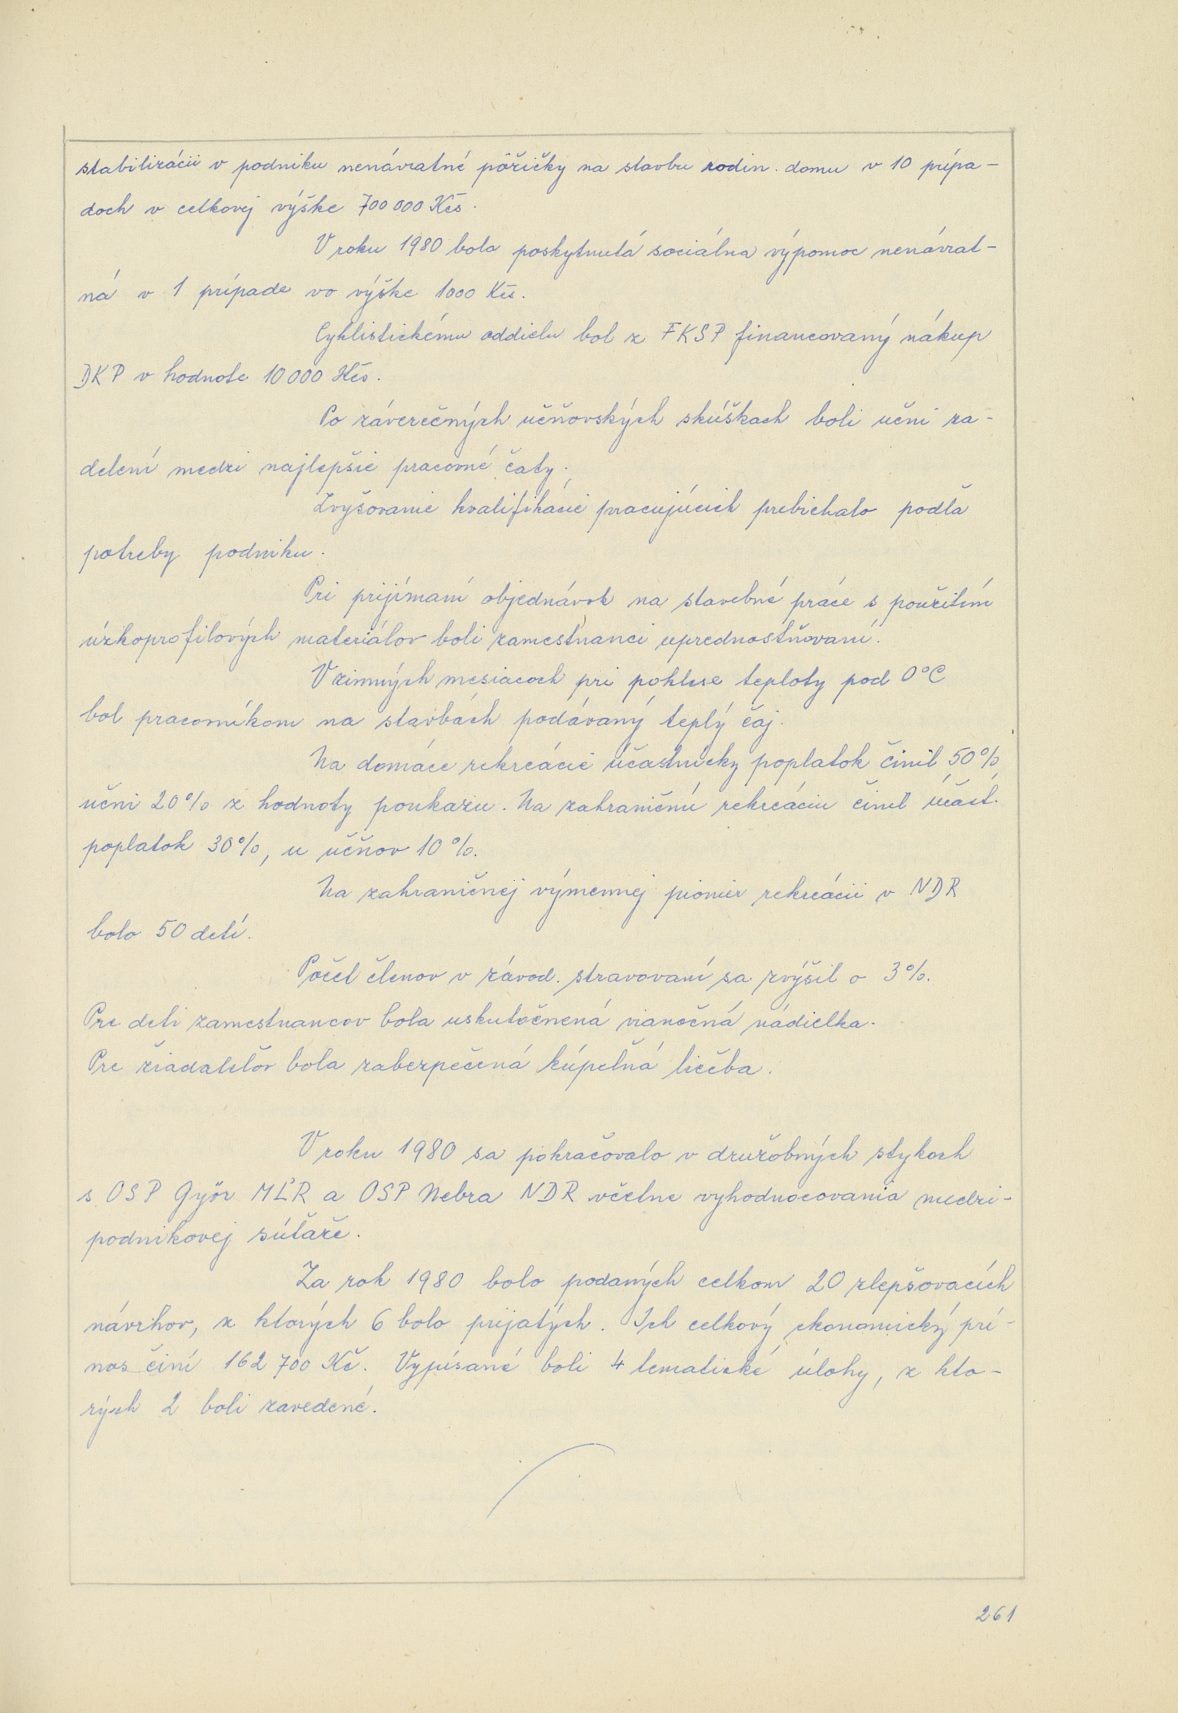 stabilizácii v podniku nenávratné pôžičky na stavbu rodin. domu v 10 prípa-
doch v celkovej výške 700 000 Kčs.
V roku 1980 bola poskytnutá sociálna výpomoc nenávrat-
ná v 1 prípade vo výške 1000 Kčs.
Cyklistickému oddielu bol z FKSP financovaný nákup
DKP v hodnote 10 000 Kčs.
Po záverečných učňovských skúškach boli učni za-
delení medzi najlepšie pracovné čaty.
Zvyšovanie kvalifikácie pracujúcich prebiehalo podľa
potreby podniku.
Pri prijímaní objednávok na stavebné práce s použitím
úzkoprofilových materiálov boli zamestnanci uprednostňovaní.
V zimných mesiacoch pri poklese teploty pod 0°C
bol pracovníkom na stavbách podávaný teplý čaj.
Na domáce rekreácie účastnícky poplatok činil 50%
učni 20% z hodnoty poukazu. Na zahraničnú rekreáciu činil účast.
poplatok 30%, u učňov 10%.
Na zahraničnej výmennej pionier rekreácii v NDR
bolo 50 detí.
Počet členov v závod. stravovaní sa zvýšil o 3%.
Pre deti zamestnancov bola uskutočnená vianočná nádielka.
Pre žiadateľov bola zabezpečená kúpeľná liečba.
V roku 1980 sa pokračovalo v družobných stykoch
s OSP Győr MĽR a OSP Nebra NDR včetne vyhodnocovania medzi-
podnikovej súťaže.
Za rok 1980 bolo podaných celkom 20 zlepšovacích
návrhov, z ktorých 6 bolo prijatých. Ich celkový ekonomický prí-
nos činí 162 700 Kč. Vypísané boli 4 tematické úlohy, z kto-
rých 2 boli zavedené.
261